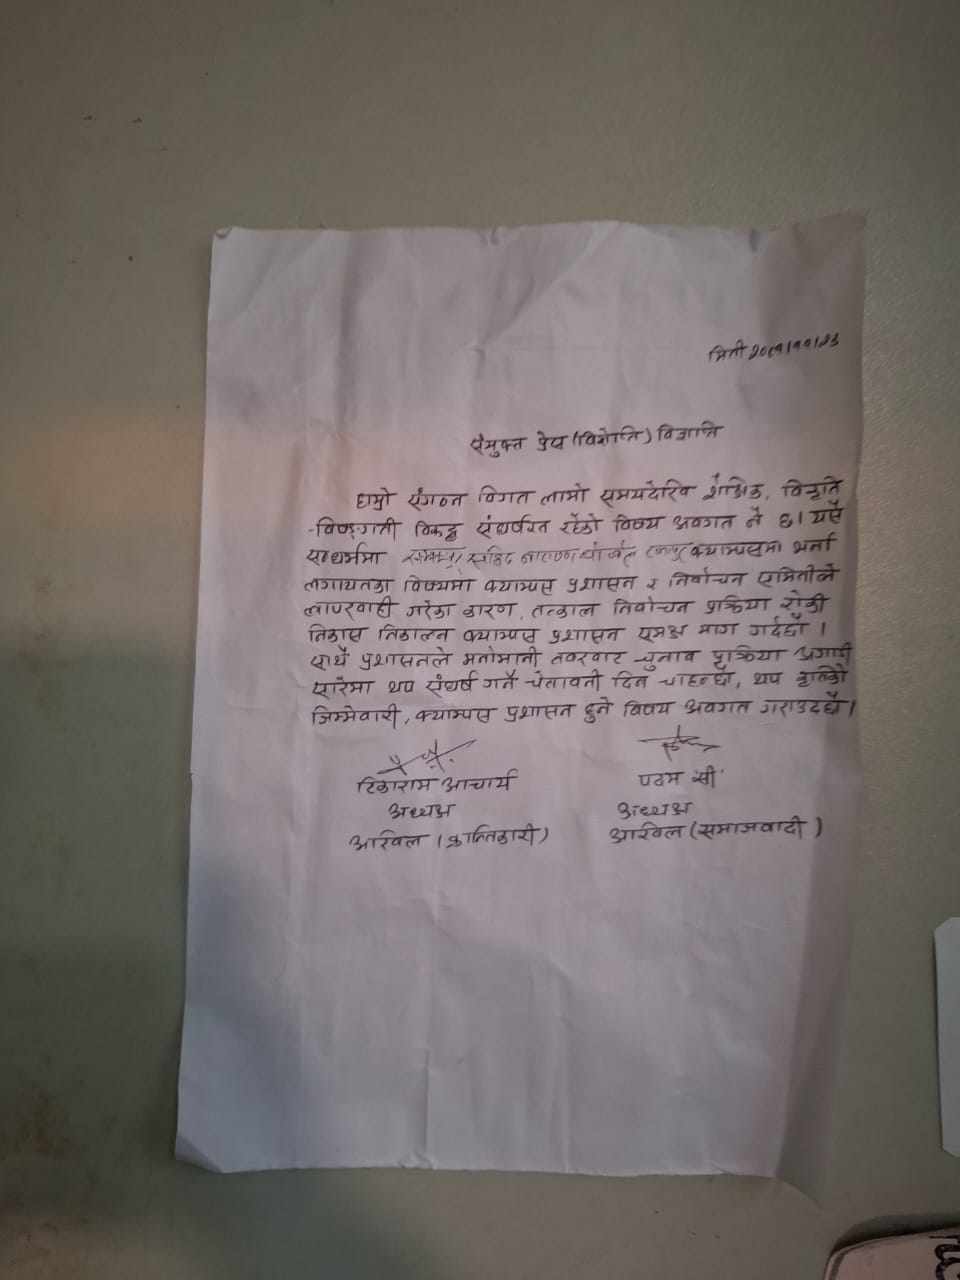 मिती २०७९।११।२३
संयुक्त प्रेस (विज्ञप्ति) विज्ञप्ति
हाम्रो संगठन विगत लामो समयदेखि शैक्षिक, विकृति
-विषङ्गती विरुद्ध संघर्षरत रहेको विषय अवगत नै छ। यसै
सन्धर्भमा सहिद नारायण क्याम्पसमा भर्ना
लगायतका विषयमा क्याम्पस प्रशासन र निर्वाचन समितीले
लापरवाही गरेका कारण, तत्काल निर्वाचन प्रक्रिया रोकी
निकास निकाल्न क्याम्पस प्रशासन समक्ष माग गर्दछौं।
साथै प्रशासनले मनोमानी तवरबाट चुनाव प्रक्रिया अगाडी
सारेमा थप संघर्ष गर्ने चेतावनी दिन चाहन्छौं, थप क्षतिको
जिम्मेवारी, क्याम्पस प्रशासन हुने विषय अवगत गराउदछौं।
टिकाराम आचार्य
अध्यक्ष
अखिल (क्रान्तिकारी)
पदम सी
अध्यक्ष
अखिल (समाजवादी)